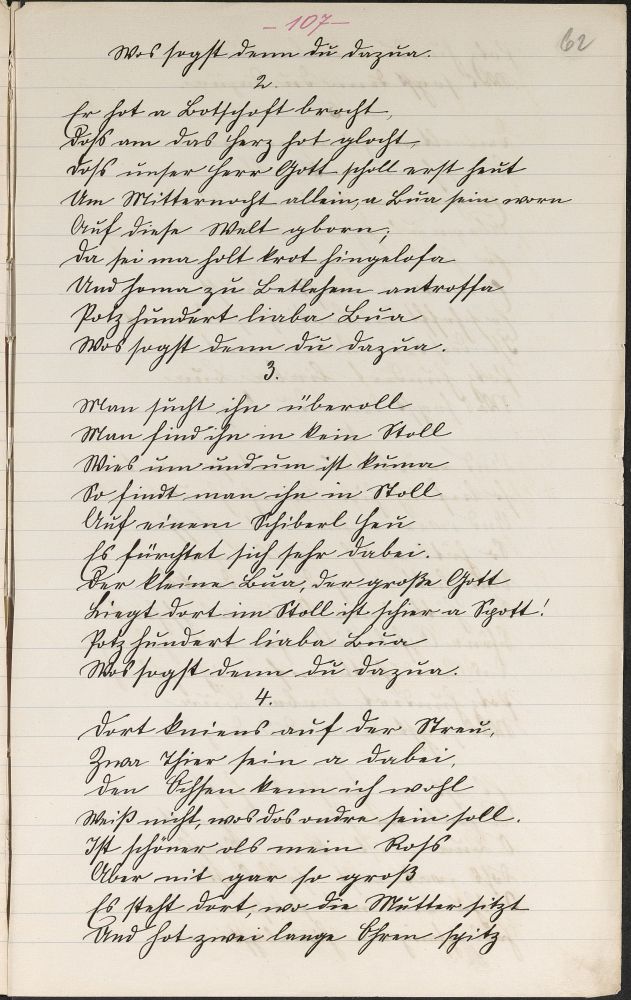 - 107 -
62
Wos sogst denn du dazua.
2.
Er hot a Botschoft brocht,
Doß am das Herz hot glocht,
Doß unser Herr Gott scholl erst heut
Um Mitternocht allein, a Bua sein worn
Auf diese Welt gborn;
Da sei ma holt krot hingelofa
Und homa zu Betlehem antroffa
Potz hundert liaba Bua
Wos sogst denn du dazua.
3.
Man sucht ihn überoll
Man find ihn in kein Stoll
Wies um und um ist kuma
So findt man ihn in Stoll
Auf einem Schiberl Heu
Es fürchtet sich sehr dabei.
Der kleine Bua, der große Gott
Liegt dort im Stoll ist schier a Spott!
Potz hundert liaba Bua
Wos sogst denn du dazua.
4.
Dort kniens auf der Streu,
Zwa Thier sein a dabei,
Den Ochsen kenn ich wohl
Weiß nicht, wos dos ondre sein soll.
Ist schöner ols mein Roß
Aber nit gar so groß
Es steht dort, wo die Mutter sitzt
Und hot zwei lange Ohren spitz